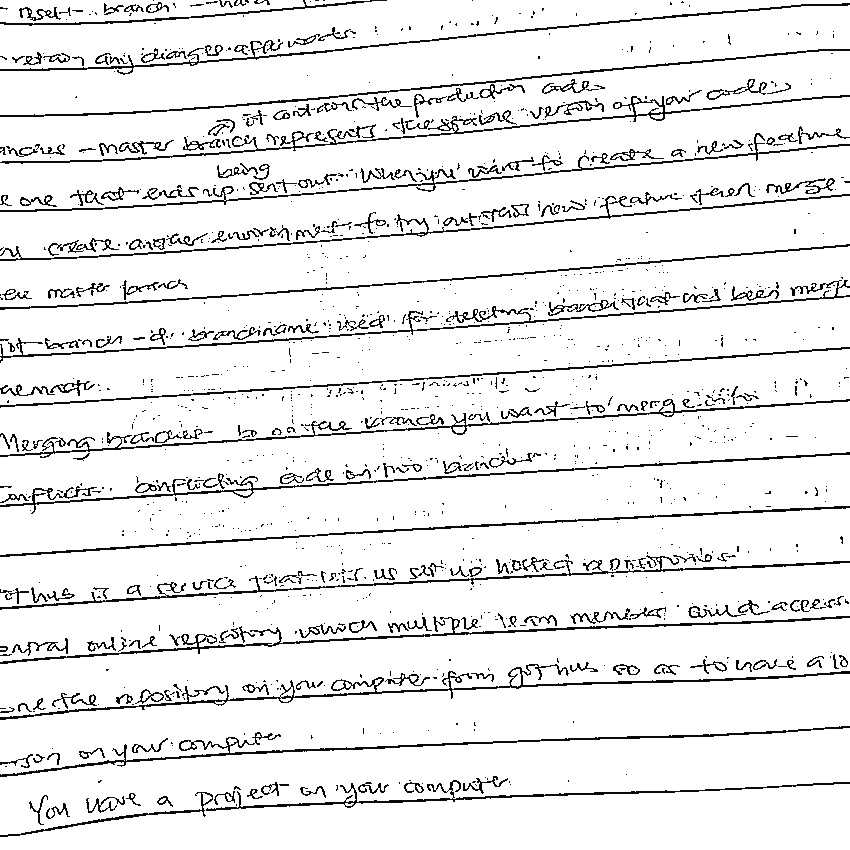 reset - branch - hard
retain any changes afterwards
→ it contains the production code
anches - master branch represents the stable version of your code
e one that ends up being sent out. When you want to create a new feature
ou create another environment to try out this new feature then merge
the master branch
git branch -d branchname used for deleting branch that has been merge
the master.
Merging branches - be on the branch you want to merge into
Conflicts. conflicting code on two branches
Github is a service that lets us set up hosted repositories
entral online repository which multiple team members could access
one the repository on your computer from github so as to have a lo
rsion on your computer
You have a project on your computer